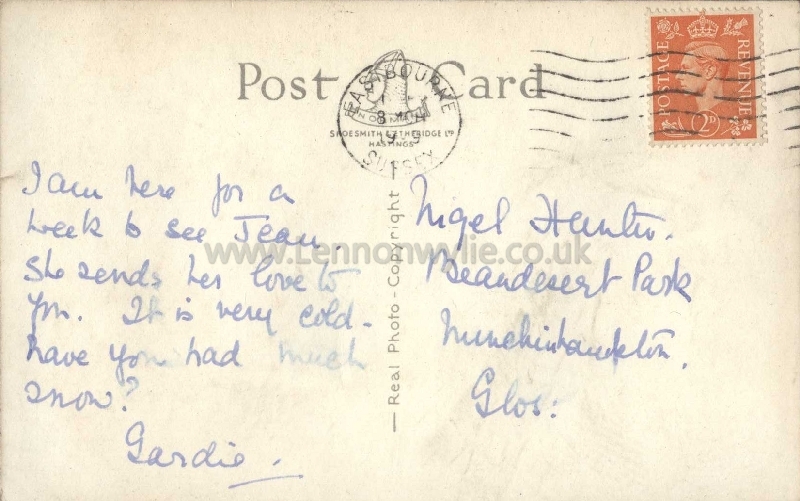 Post Card
EASTBOURNE
SUSSEX
NORMAN
SHOESMITH & ETHERIDGE LTD
HASTINGS
POSTAGE
REVENUE
2D
I am here for a
week to see Jean.
She sends her love to
you. It is very cold-
have you had much
snow?
Gardie.
— Real Photo - Copyright
Nigel Hunter.
Beaudesert Park
Minchinhampton.
Glos:
www.Lennonwylie.co.uk